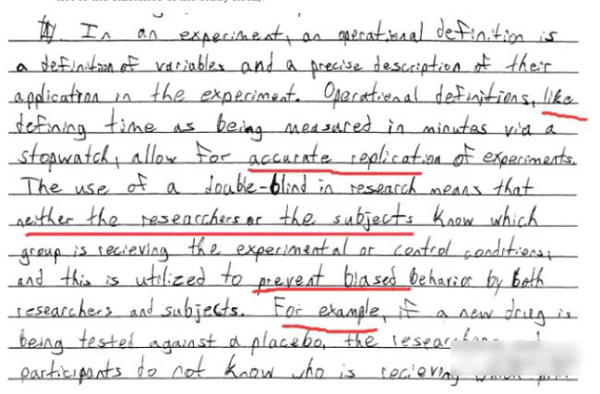 In an experiment, an operational definition is
a definition of variables and a precise description of their
application in the experiment. Operational definitions, like
defining time as being measured in minutes via a
stopwatch, allow for accurate replication of experiments.
The use of a double-blind in research means that
neither the researchers or the subjects know which
group is recieving the experimental or control conditions,
and this is utilized to prevent biased behavior by both
researchers and subjects. For example, if a new drug is
being tested against a placebo, the
participants do not know who is recieving